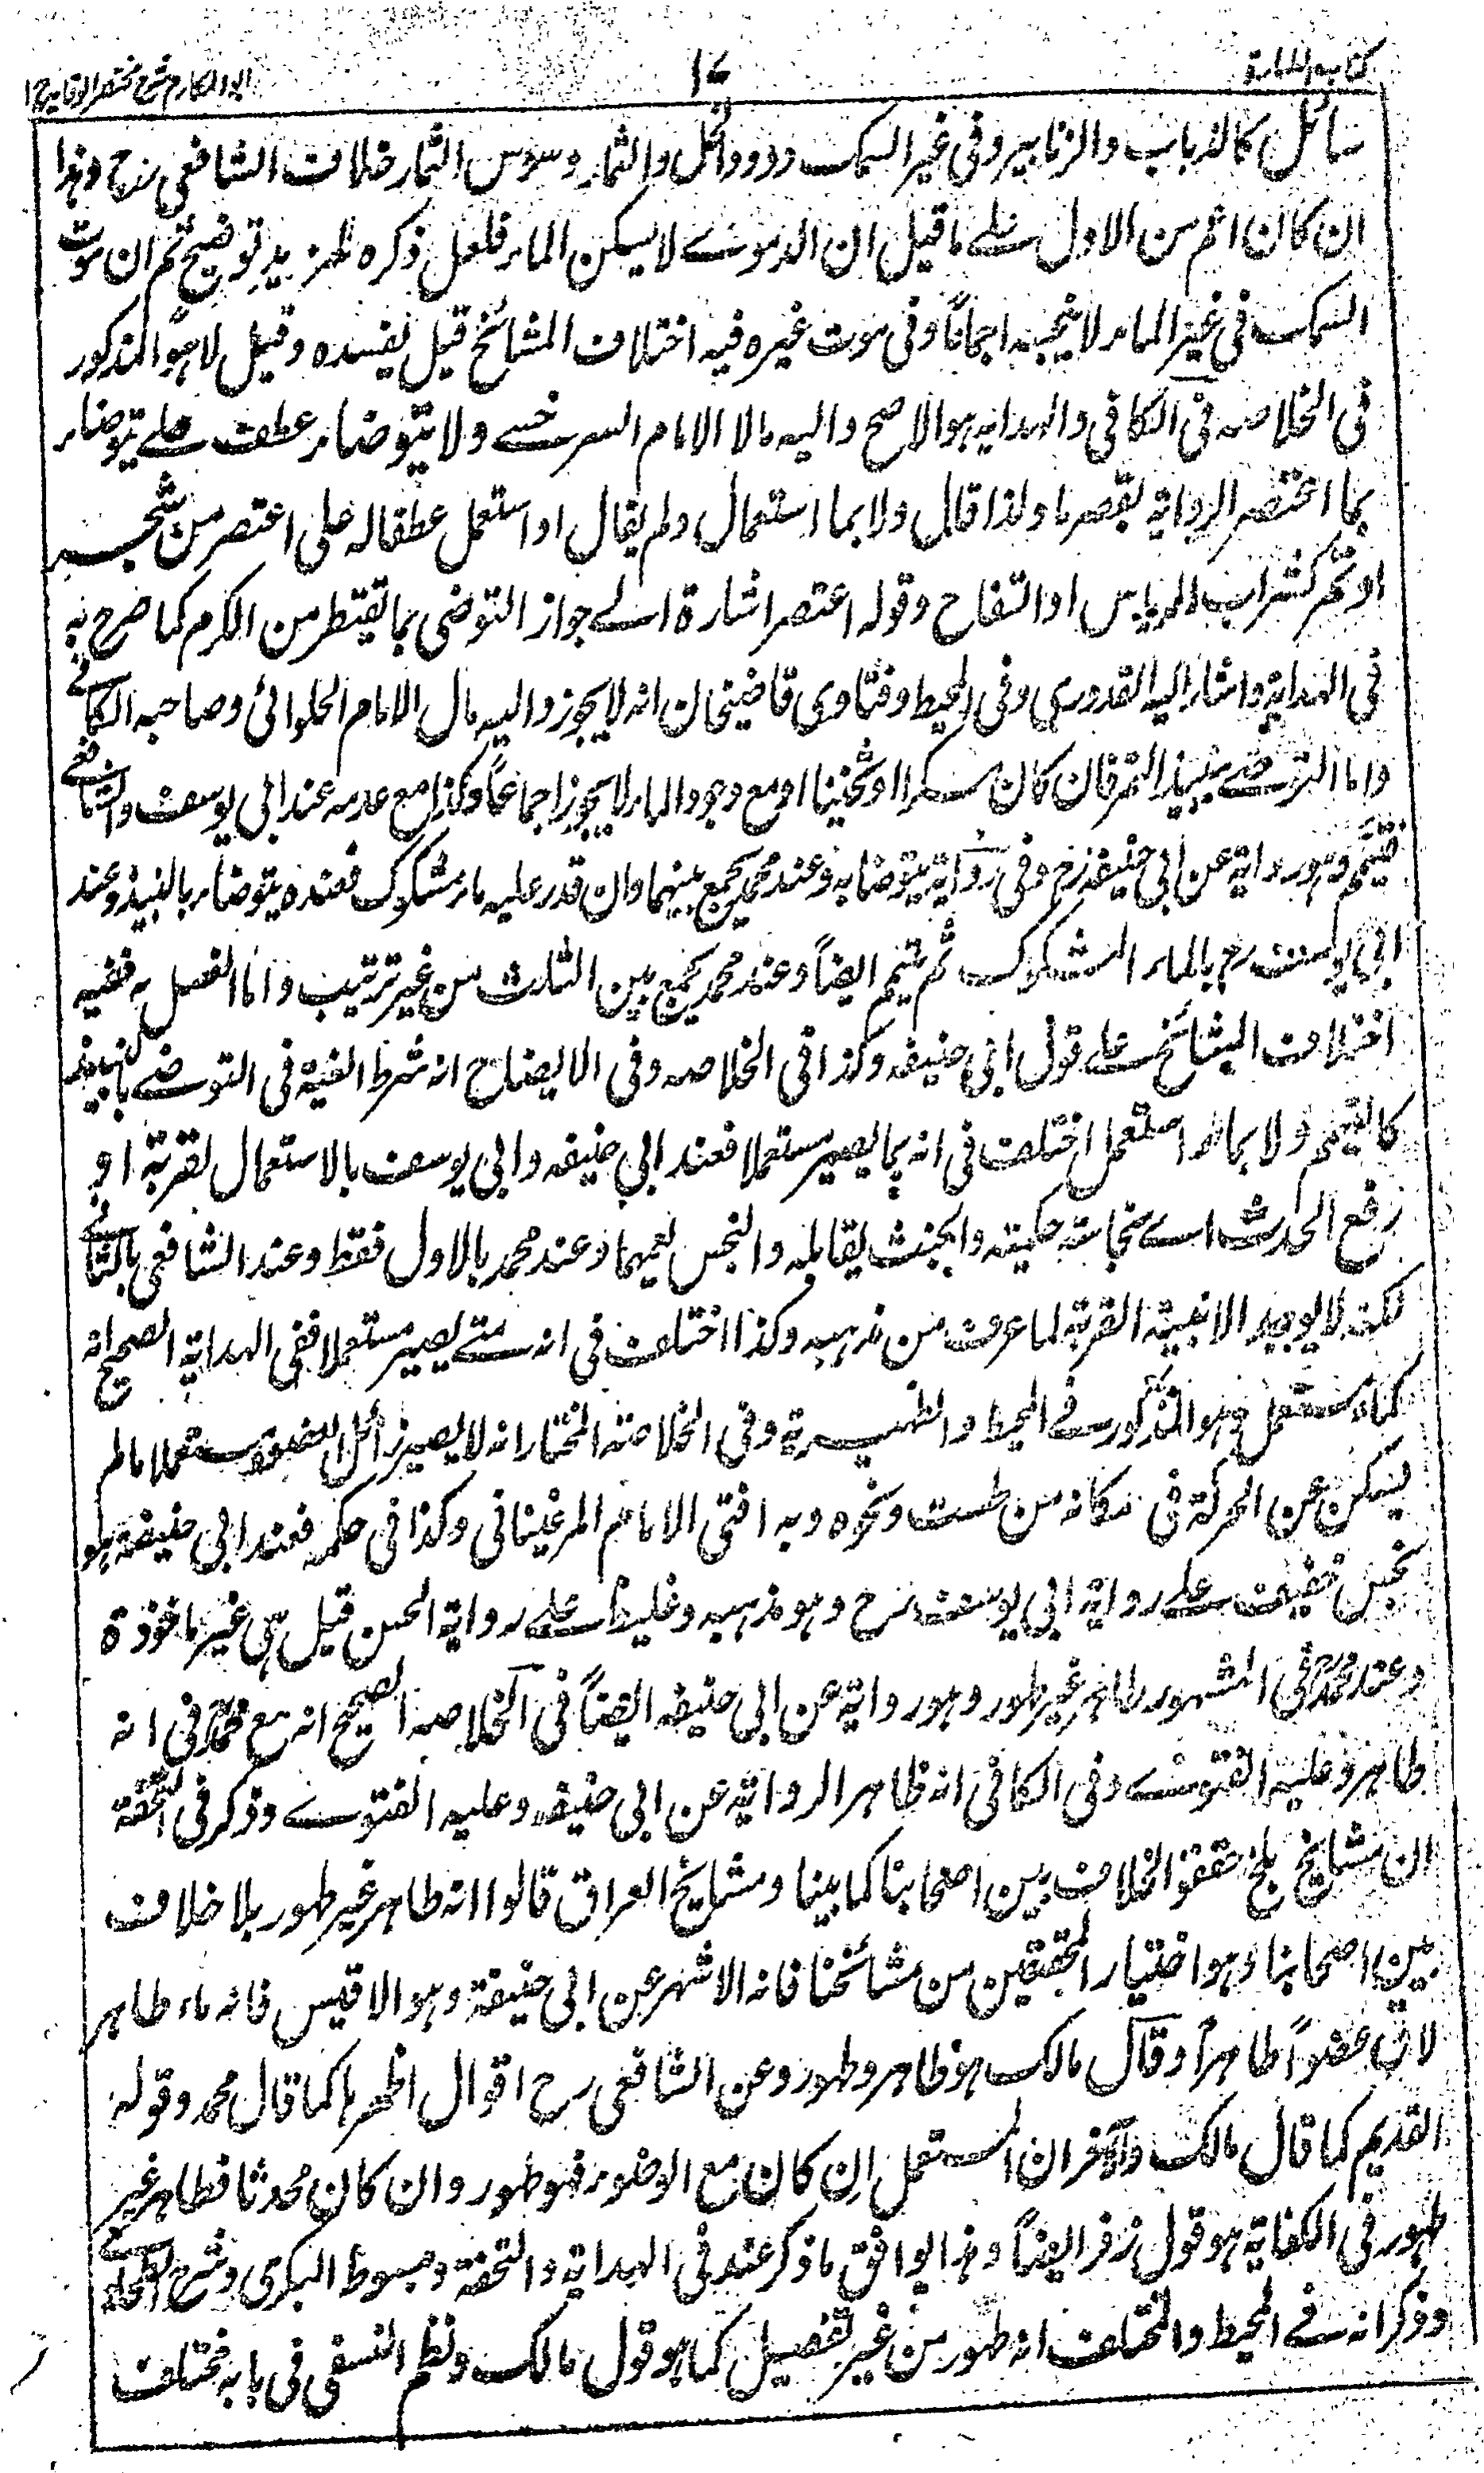 كتاب الطهارة ١٤ ابو المكارم شرح مختصر الوقاية ج ١
سائل كالذباب والزنابير وفى غير السمك ودود الخل والثمار وسوس الثمار خلاف الشافعى رح وهذا
ان كان اعم من الاول على ما قيل ان الدموى لا يسكن الماء فلعل ذكره لمزيد توضيح ثم ان موت
السمك فى غير الماء لا ينجسه اجماعًا وفى موت غيره فيه اختلاف المشائخ قيل يفسده وقيل لا هو المذكور
فى الخلاصه فى الكافى والهدايه هو الاصح واليه مال الامام السرخسى ولا يتوضاء عطف على يتوضاء
بما اعتصر الرواية بقصر ما ولذا قال ولا بما استعمال ولم يقال او استعمل عطفا له على اعتصر من شجر
او ثمر كشراب الريباس او التفاح وقوله اعتصر اشارة الى جواز التوضى بما تقيطر من الكرم كما صرح به
فى الهداية واشار اليه القدورى وفى المحيط وفتاوى قاضيخان انه لا يجوز واليه مال الامام الحلوائى وصاحبه الكافى
واما التوضى بنبيذ التمر فان كان مسكرا او ثخينا او مع وجود الماء لا يجوز اجماعًا وكذا مع عدمه عند ابى يوسف والشافعى
فيتيمم وهو رواية عن ابى حنيفه رح وفى رواية يتوضا به وعند محمد يجمع بينهما وان قدر عليه ماء مشكوك فعنده يتوضاء بالنبيذ وعند
ابى يوسف رح بالماء المشكوك ثم يتيمم ايضًا وعند محمد يجمع بين الثلث من غير ترتيب واما الغسل به ففيه
اختلاف المشائخ على قول ابى حنيفه وكذا فى الخلاصه وفى الايضاح انه شرط النية فى التوضى بالنبيذ
كالتيمم ولا بماء استعمل اختلف فى انه بما يصير مستعملا فعند ابى حنيفه وابى يوسف بالاستعمال لقربة او
رفع الحدث اى نجاسة حكيته والخبث يقابله والنجس يعمهما وعند محمد بالاول فقط وعند الشافعى بالثانى
لكنه لا يوجد الا بنية القربة لما عرف من مذهبه وكذا اختلف فى انه متى يصير مستعملا ففى الهداية الصحيح انه
كما مستعمل وهو المذكور فى المحيط والظهيرية وفى الخلاصة المختار انه لا يصير زائل العضو مستعملا ما لم
يسكن عن الحركة فى مكانه من طست ونحوه وبه افتى الامام المرغينانى وكذا فى حكمه فعند ابى حنيفة هو
نجس خفيف على رواية ابى يوسف رح وهو مذهبه وغليظ على رواية الحسن قيل هى غير ماخوذة
وعند محمد فى المشهور طاهر غير طهور وهو رواية عن ابى حنيفه ايضًا فى الخلاصه الصحيح انه مع محمد فى انه
طاهر وعليه الفتوى وفى الكافى انه ظاهر الرواية عن ابى حنيفه وعليه الفتوى وذكر فى التحفة
ان مشايخ بلخ حققوا الخلاف بين اصحابنا كما بينا ومشايخ العراق قالوا انه طاهر غير طهور بلا خلاف
بين اصحابنا وهو اختيار المحققين من مشائخنا فانه الاشهر عن ابى حنيفة وهو الاقيس فانه ماء طاهر
لاقى عضواً طاهراً وقال مالك هو طاهر وطهور وعن الشافعى رح اقوال اظهرها كما قال محمد وقوله
القديم كما قال مالك والاخر ان المستعمل ان كان مع الوضوء فهو طهور وان كان محدثا فطاهر غير
طهور فى الكفاية هو قول زفر ايضًا وهذا يوافق ما ذكر عنه فى الهداية والتحفة ومبسوط البكرى وشرح
وذكر انه فى المحيط والمختلف انه طهور من غير تفصيل كما هو قول مالك ونظم النسفى فى بابه مختلف